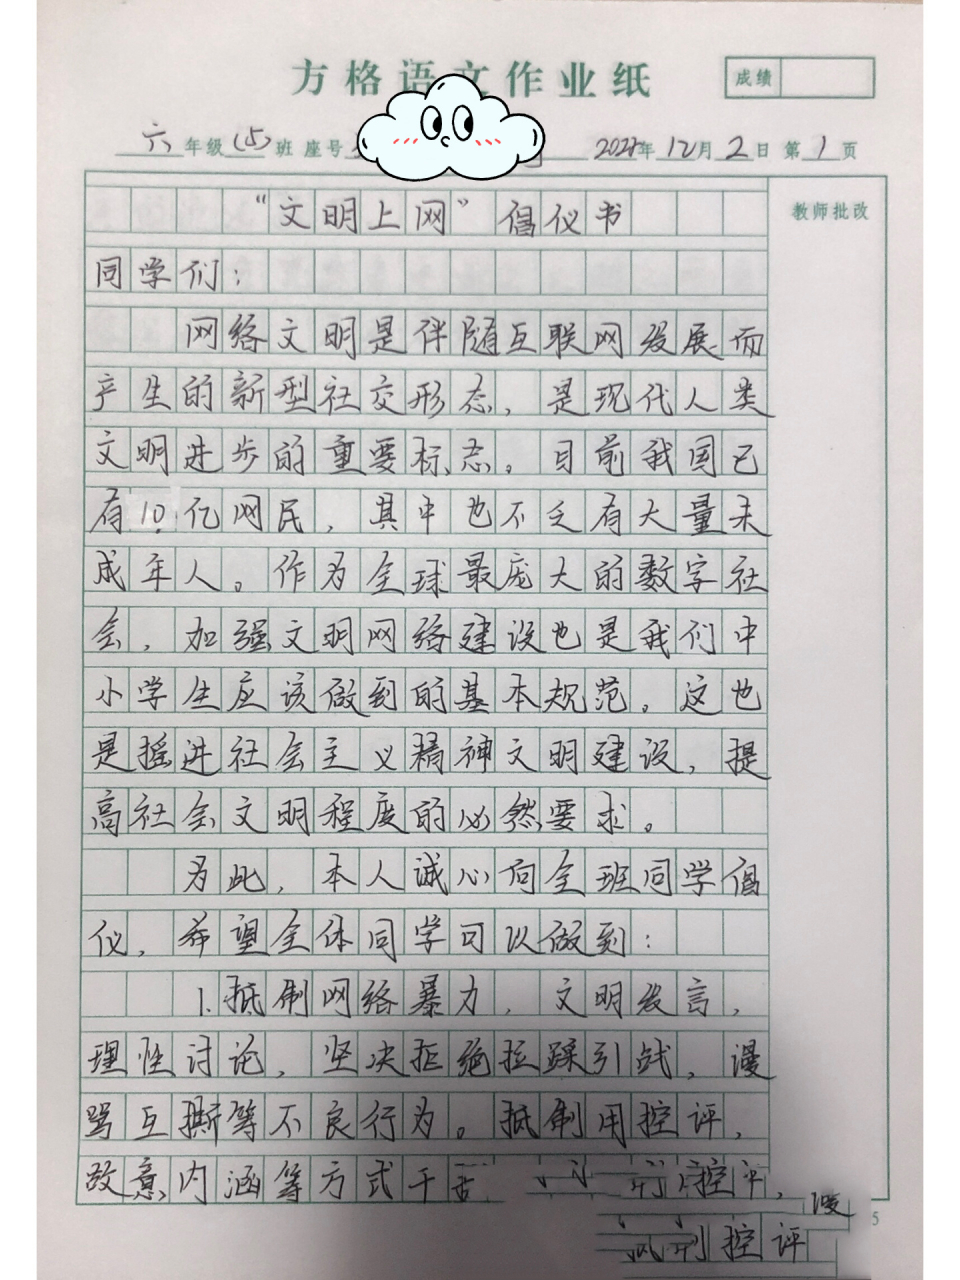 方格语文作业纸
成绩
六年级(5)班 座号 年12月2日 第1页
教师批改
“文明上网”倡仪书
同学们：
网络文明是伴随互联网发展而
产生的新型社交形态，是现代人类
文明进步的重要标志。目前我国已
有10亿网民，其中也不乏有大量未
成年人。作为全球最庞大的数字社
会，加强文明网络建设也是我们中
小学生应该做到的基本规范。这也
是摇进社会主义精神文明建设，提
高社会文明程度的必然要求。
为此，本人诚心向全班同学倡
仪，希望全体同学可以做到：
1.抵制网络暴力，文明发言，
理性讨论，坚决拒绝拉踩引战，漫
骂互撕等不良行为。抵制用控评，
故意内涵等方式干
控评，
控评
5